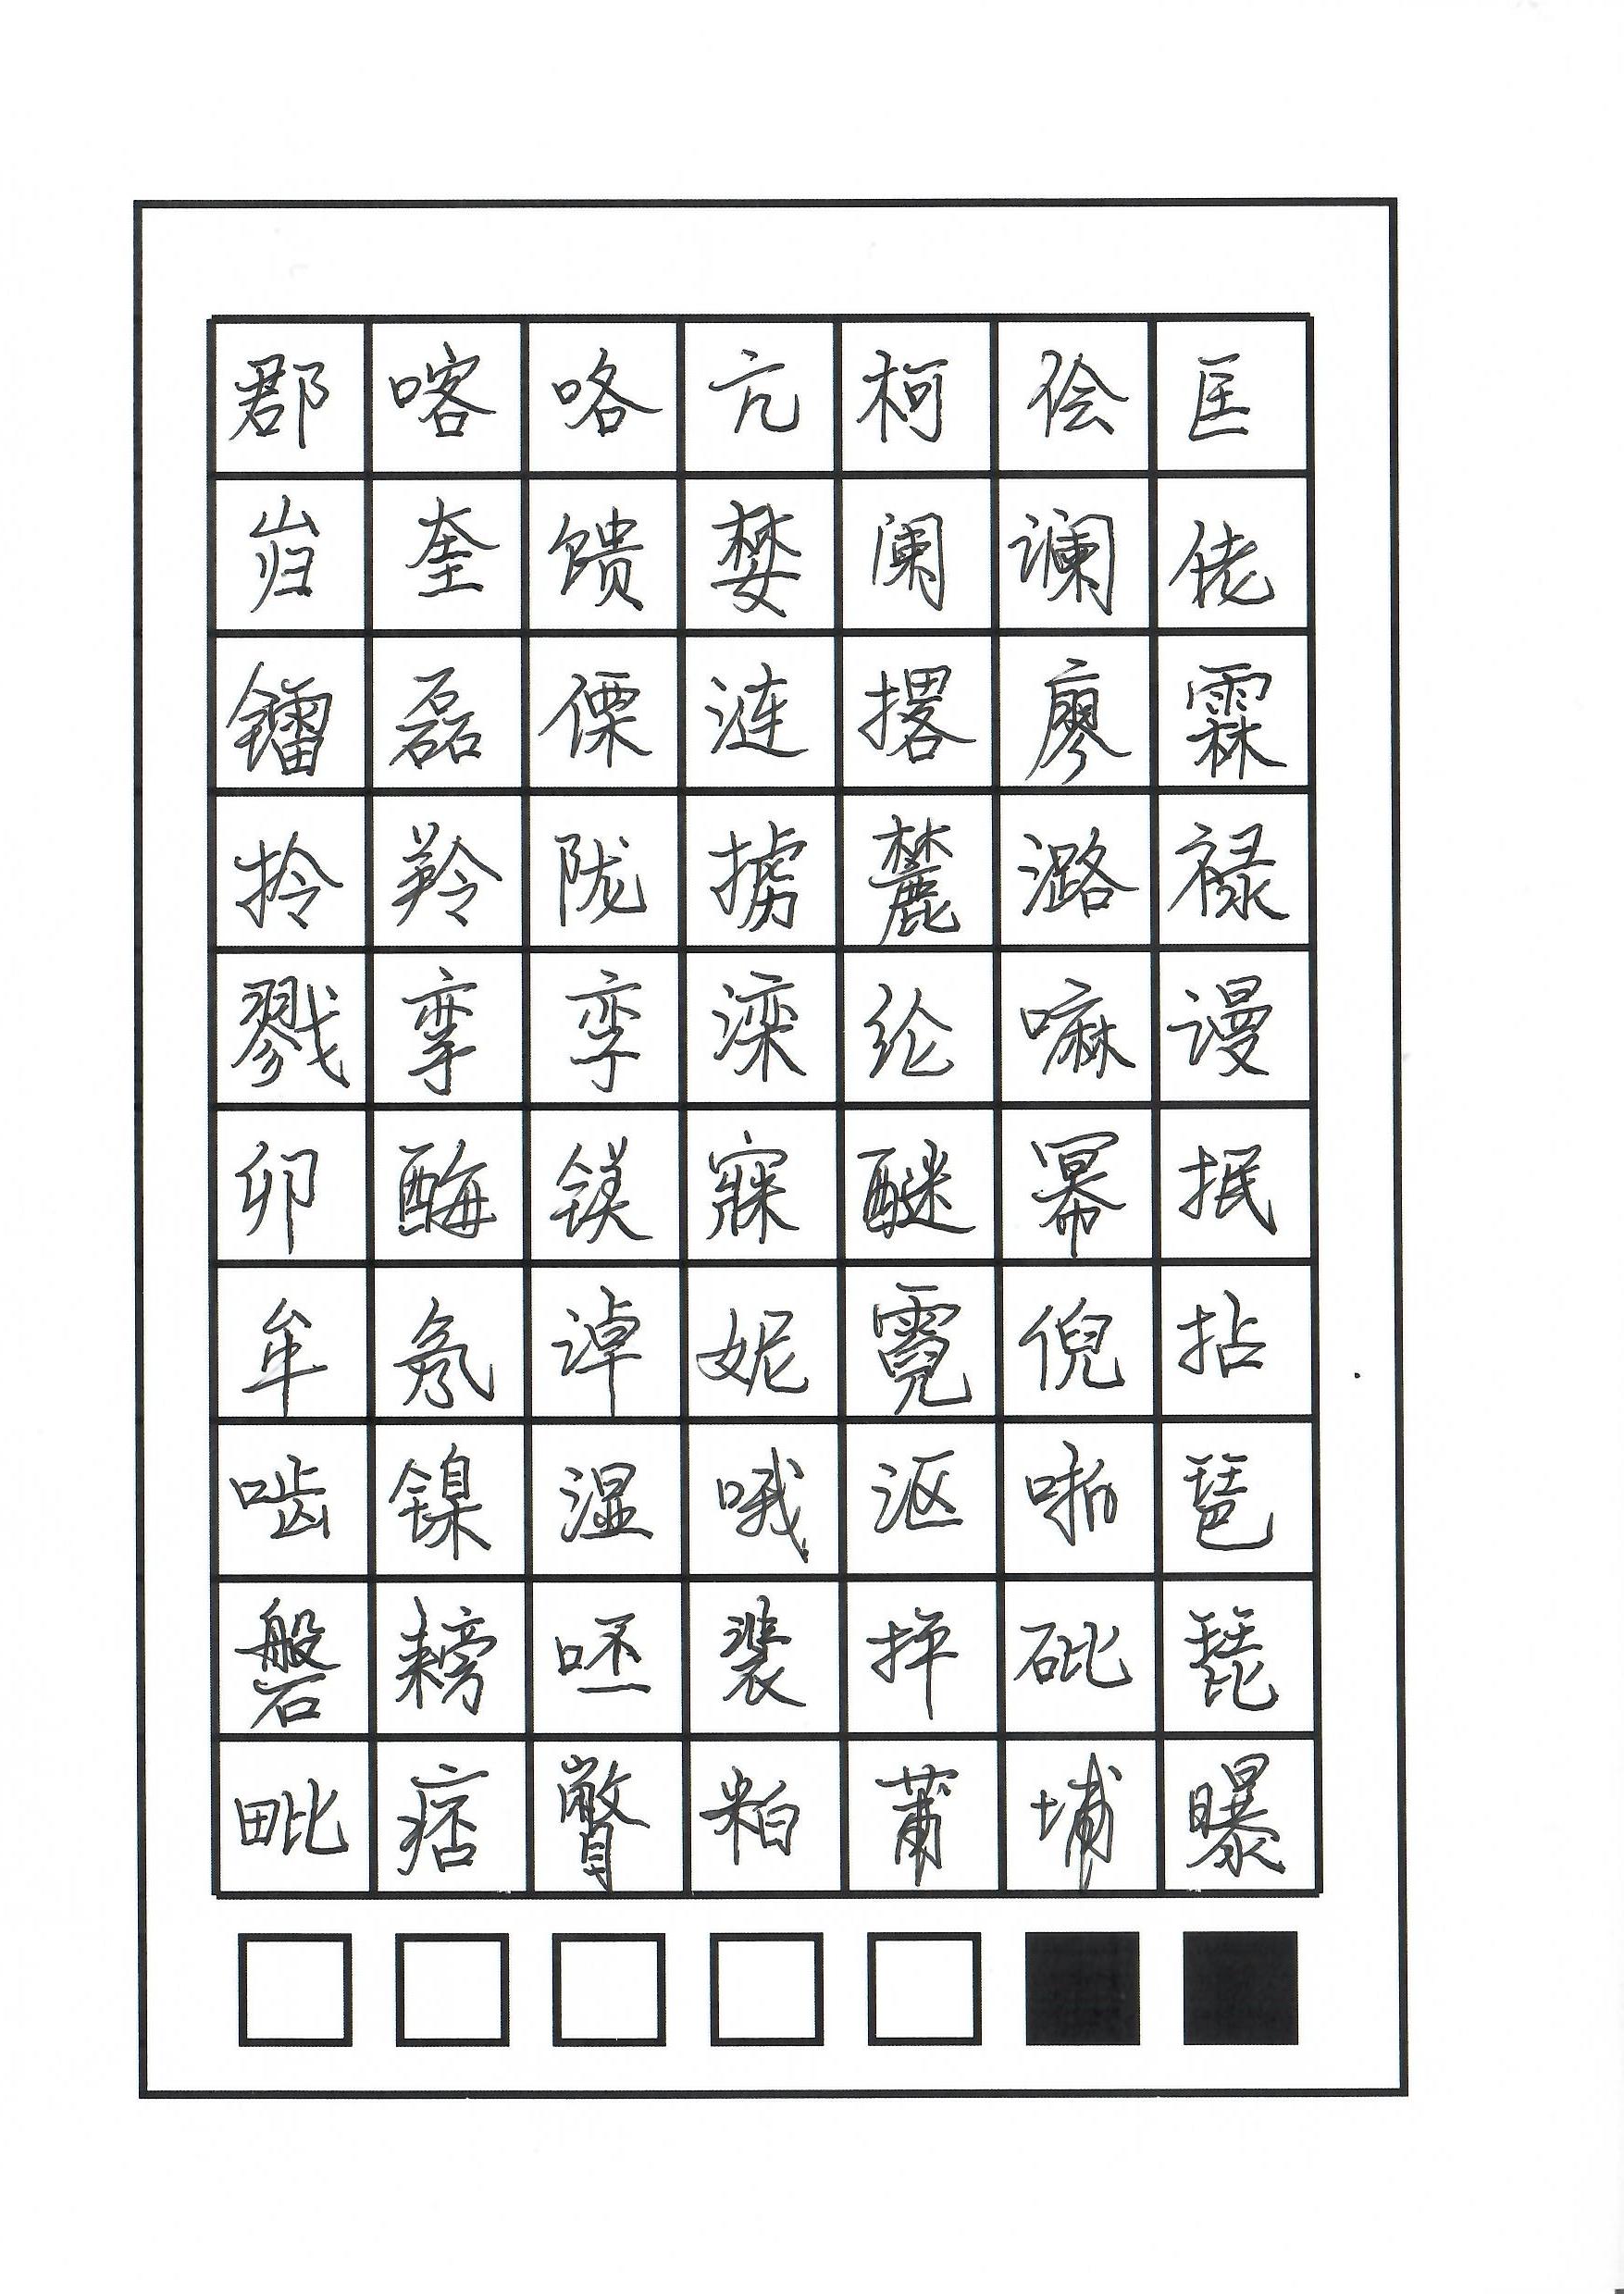 郡喀咯亢柯侩匡
岿奎馈婪阑谰佬
镭磊傈涟撂廖霖
拎羚陇掳麓潞禄
戮挛孪滦纶嘛谩
卯酶镁寐醚幂抿
牟氖淖妮霓倪拈
啮镍涅哦沤啪琶
磐耪呸裴抨砒琵
毗痞瞥粕莆埔曝